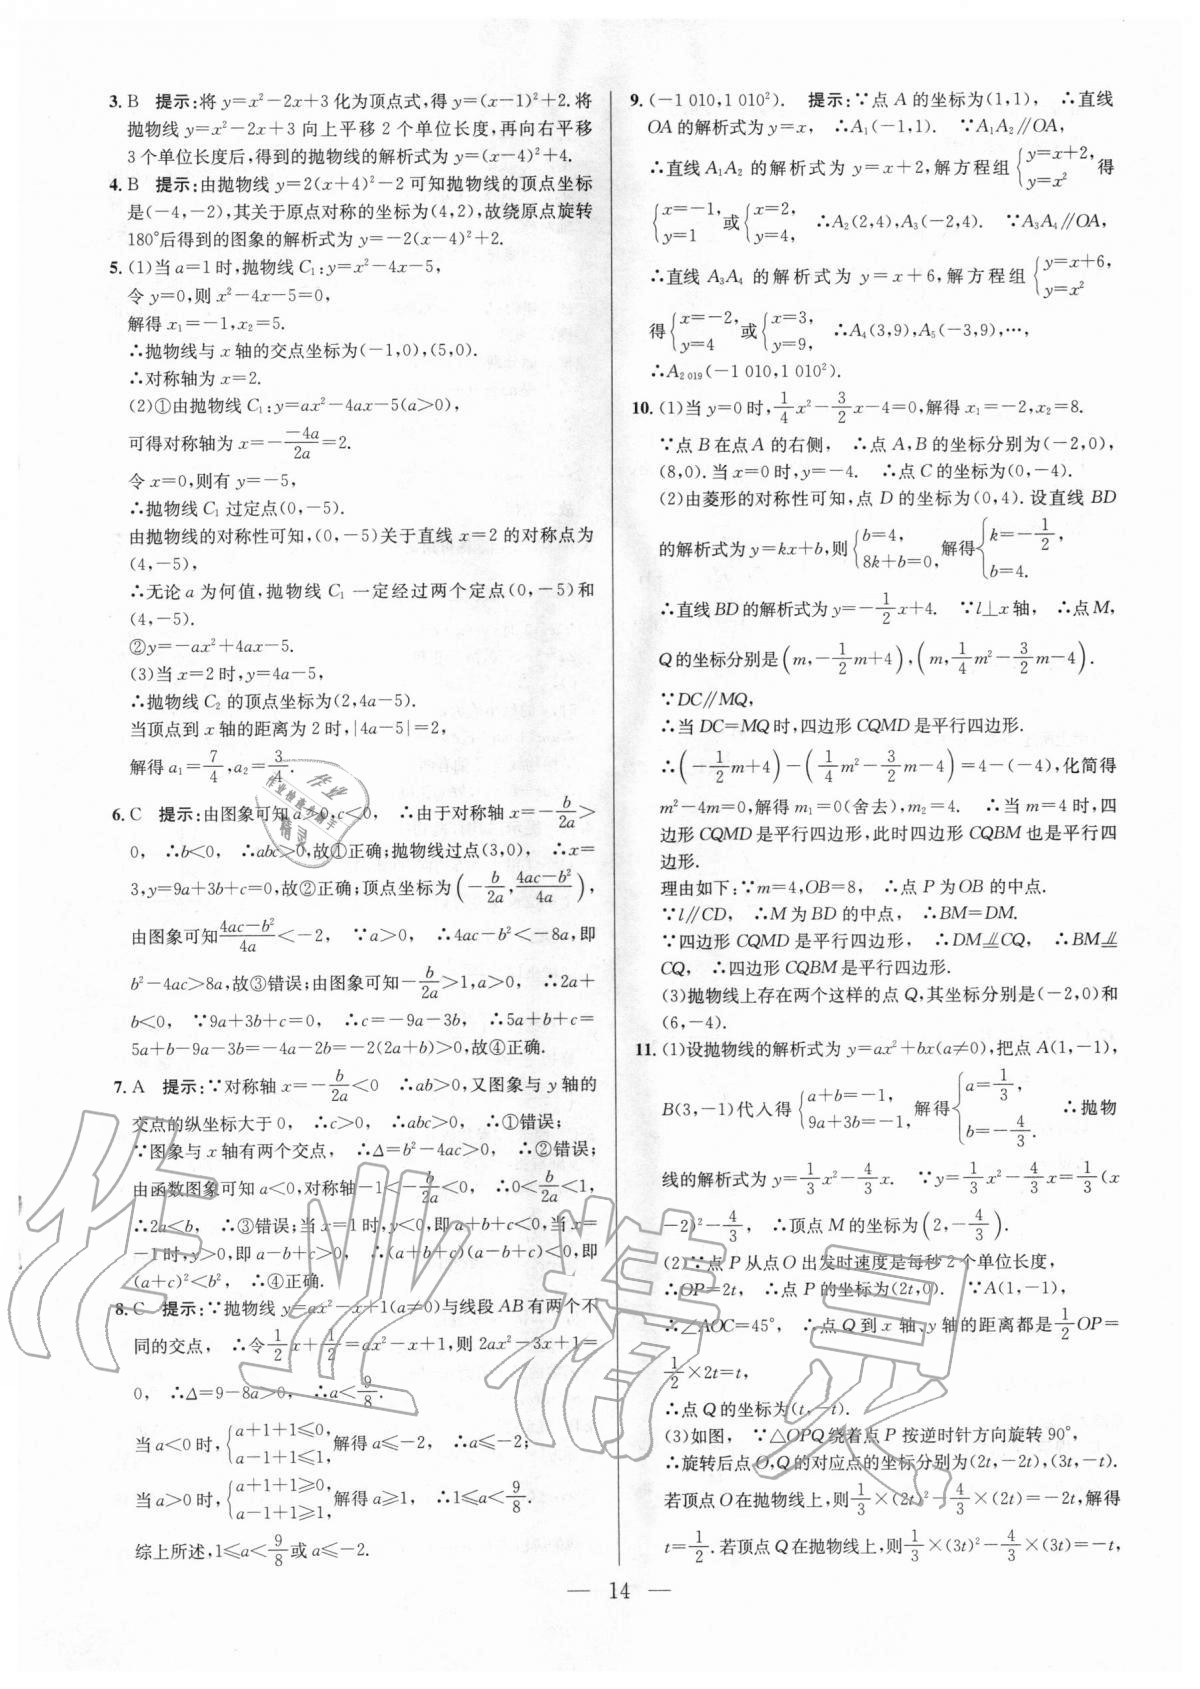 3. B 提示:将 y=x²-2x+3 化为顶点式,得 y=(x-1)²+2.将
抛物线 y=x²-2x+3 向上平移 2 个单位长度,再向右平移
3 个单位长度后,得到的抛物线的解析式为 y=(x-4)²+4.
4. B 提示:由抛物线 y=2(x+4)²-2 可知抛物线的顶点坐标
是(-4,-2),其关于原点对称的坐标为(4,2),故绕原点旋转
180°后得到的图象的解析式为 y=-2(x-4)²+2.
5. (1)当 a=1 时,抛物线 C₁:y=x²-4x-5,
令 y=0,则 x²-4x-5=0,
解得 x₁=-1,x₂=5.
∴抛物线与 x 轴的交点坐标为(-1,0),(5,0).
∴对称轴为 x=2.
(2)①由抛物线 C₁:y=ax²-4ax-5(a>0),
可得对称轴为 x=-\frac{-4a}{2a}=2.
令 x=0,则有 y=-5,
∴抛物线 C₁ 过定点(0,-5).
由抛物线的对称性可知,(0,-5)关于直线 x=2 的对称点为
(4,-5),
∴无论 a 为何值,抛物线 C₁ 一定经过两个定点(0,-5)和
(4,-5).
②y=-ax²+4ax-5.
(3)当 x=2 时,y=4a-5,
∴抛物线 C₂ 的顶点坐标为(2,4a-5).
当顶点到 x 轴的距离为 2 时,|4a-5|=2,
解得 a₁=\frac{7}{4},a₂=\frac{3}{4}.
6. C 提示:由图象可知 a>0,c<0, ∴由于对称轴 x=-\frac{b}{2a}>
0, ∴b<0, ∴abc>0,故①正确;抛物线过点(3,0), ∴x=
3,y=9a+3b+c=0,故②正确;顶点坐标为(-\frac{b}{2a},\frac{4ac-b²}{4a}),
由图象可知\frac{4ac-b²}{4a}<-2, ∵a>0, ∴4ac-b²<-8a,即
b²-4ac>8a,故③错误;由图象可知-\frac{b}{2a}>1,a>0, ∴2a+
b<0, ∵9a+3b+c=0, ∴c=-9a-3b, ∴5a+b+c=
5a+b-9a-3b=-4a-2b=-2(2a+b)>0,故④正确.
7. A 提示:∵对称轴 x=-\frac{b}{2a}<0 ∴ab>0,又图象与 y 轴的
交点的纵坐标大于 0, ∴c>0, ∴abc>0, ∴①错误;
∵图象与 x 轴有两个交点, ∴Δ=b²-4ac>0, ∴②错误;
由函数图象可知 a<0,对称轴-1<-\frac{b}{2a}<0, ∴0<\frac{b}{2a}<1,
∴2a<b, ∴③错误;当 x=1 时,y<0,即 a+b+c<0,当 x=
-1 时,y>0,即 a-b+c>0, ∴(a+b+c)(a-b+c)<0,即
(a+c)²<b², ∴④正确.
8. C 提示:∵抛物线 y=ax²-x+1(a≠0)与线段 AB 有两个不
同的交点, ∴令\frac{1}{2}x+\frac{1}{2}=ax²-x+1,则 2ax²-3x+1=
0, ∴Δ=9-8a>0, ∴a<\frac{9}{8}.
当 a<0 时,{a+1+1≤0, a-1+1≤1, 解得 a≤-2, ∴a≤-2;
当 a>0 时,{a+1+1≥0, a-1+1≥1, 解得 a≥1, ∴1≤a<\frac{9}{8}.
综上所述,1≤a<\frac{9}{8}或 a≤-2.
9. (-1 010,1 010²). 提示:∵点 A 的坐标为(1,1), ∴直线
OA 的解析式为 y=x, ∴A₁(-1,1). ∵A₁A₂∥OA,
∴直线 A₁A₂ 的解析式为 y=x+2,解方程组{y=x+2, y=x² 得
{x=-1, y=1 或{x=2, y=4, ∴A₂(2,4),A₃(-2,4). ∵A₃A₄∥OA,
∴直线 A₃A₄ 的解析式为 y=x+6,解方程组{y=x+6, y=x²
得{x=-2, y=4 或{x=3, y=9, ∴A₄(3,9),A₅(-3,9),…,
∴A₂ ₀₁₉(-1 010,1 010²).
10. (1)当 y=0 时,\frac{1}{4}x²-\frac{3}{2}x-4=0,解得 x₁=-2,x₂=8.
∵点 B 在点 A 的右侧, ∴点 A,B 的坐标分别为(-2,0),
(8,0).当 x=0 时,y=-4. ∴点 C 的坐标为(0,-4).
(2)由菱形的对称性可知,点 D 的坐标为(0,4).设直线 BD
的解析式为 y=kx+b,则{b=4, 8k+b=0, 解得{k=-\frac{1}{2}, b=4.
∴直线 BD 的解析式为 y=-\frac{1}{2}x+4. ∵l⊥x 轴, ∴点 M,
Q 的坐标分别是(m,-\frac{1}{2}m+4),(m,\frac{1}{4}m²-\frac{3}{2}m-4).
∵DC∥MQ,
∴当 DC=MQ 时,四边形 CQMD 是平行四边形.
∴(-\frac{1}{2}m+4)-(\frac{1}{4}m²-\frac{3}{2}m-4)=4-(-4),化简得
m²-4m=0,解得 m₁=0(舍去),m₂=4. ∴当 m=4 时,四
边形 CQMD 是平行四边形,此时四边形 CQBM 也是平行四
边形.
理由如下:∵m=4,OB=8, ∴点 P 为 OB 的中点.
∵l∥CD, ∴M 为 BD 的中点, ∴BM=DM.
∵四边形 CQMD 是平行四边形, ∴DM⫫CQ, ∴BM⫫
CQ, ∴四边形 CQBM 是平行四边形.
(3)抛物线上存在两个这样的点 Q,其坐标分别是(-2,0)和
(6,-4).
11. (1)设抛物线的解析式为 y=ax²+bx(a≠0),把点 A(1,-1),
B(3,-1)代入得{a+b=-1, 9a+3b=-1, 解得{a=\frac{1}{3}, b=-\frac{4}{3}. ∴抛物
线的解析式为 y=\frac{1}{3}x²-\frac{4}{3}x. ∵y=\frac{1}{3}x²-\frac{4}{3}x=\frac{1}{3}(x
-2)²-\frac{4}{3}, ∴顶点 M 的坐标为(2,-\frac{4}{3}).
(2)∵点 P 从点 O 出发时速度是每秒 2 个单位长度,
∴OP=2t, ∴点 P 的坐标为(2t,0). ∵A(1,-1),
∴∠AOC=45°, ∴点 Q 到 x 轴、y 轴的距离都是\frac{1}{2}OP=
\frac{1}{2}×2t=t,
∴点 Q 的坐标为(t,-t).
(3)如图, ∵△OPQ 绕着点 P 按逆时针方向旋转 90°,
∴旋转后点 O,Q 的对应点的坐标分别为(2t,-2t),(3t,-t).
若顶点 O 在抛物线上,则\frac{1}{3}×(2t)²-\frac{4}{3}×(2t)=-2t,解得
t=\frac{1}{2}.若顶点 Q 在抛物线上,则\frac{1}{3}×(3t)²-\frac{4}{3}×(3t)=-t,
— 14 —
作业精灵